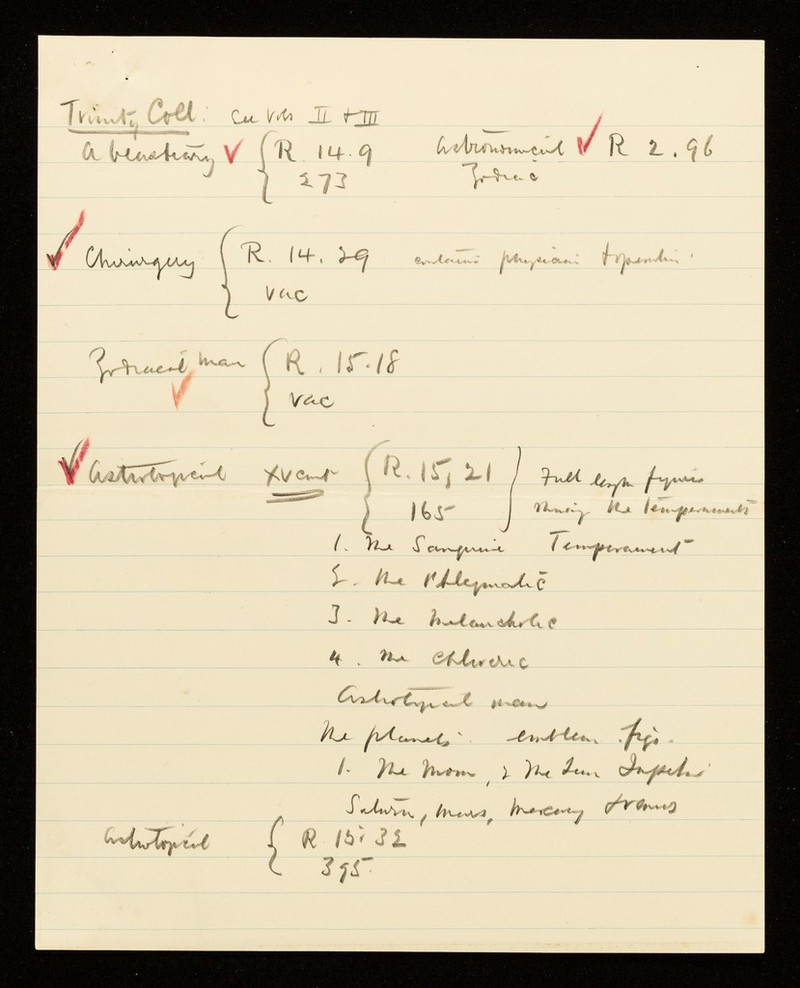 Trinity Coll: See Vols II + III
A bleastiary R. 14.9 Astronomical R 2.96
273 Zodiac
Chirurgery R. 14. 29 contains physician
vac
Zodiacal Man R. 15.18
vac
Astrological XV cent R. 15, 21 Full length figures
165 showing the Temperaments
1. The Sanguine Temperament
2. The Phlegmatic
3. The Melancholic
4. The Choleric
Astrological man
The planets. emblem figs.
1. The Moon, 2 The Sun Jupiter
Saturn, Mars, Mercury + Venus
Astrological R. 15. 32
395.